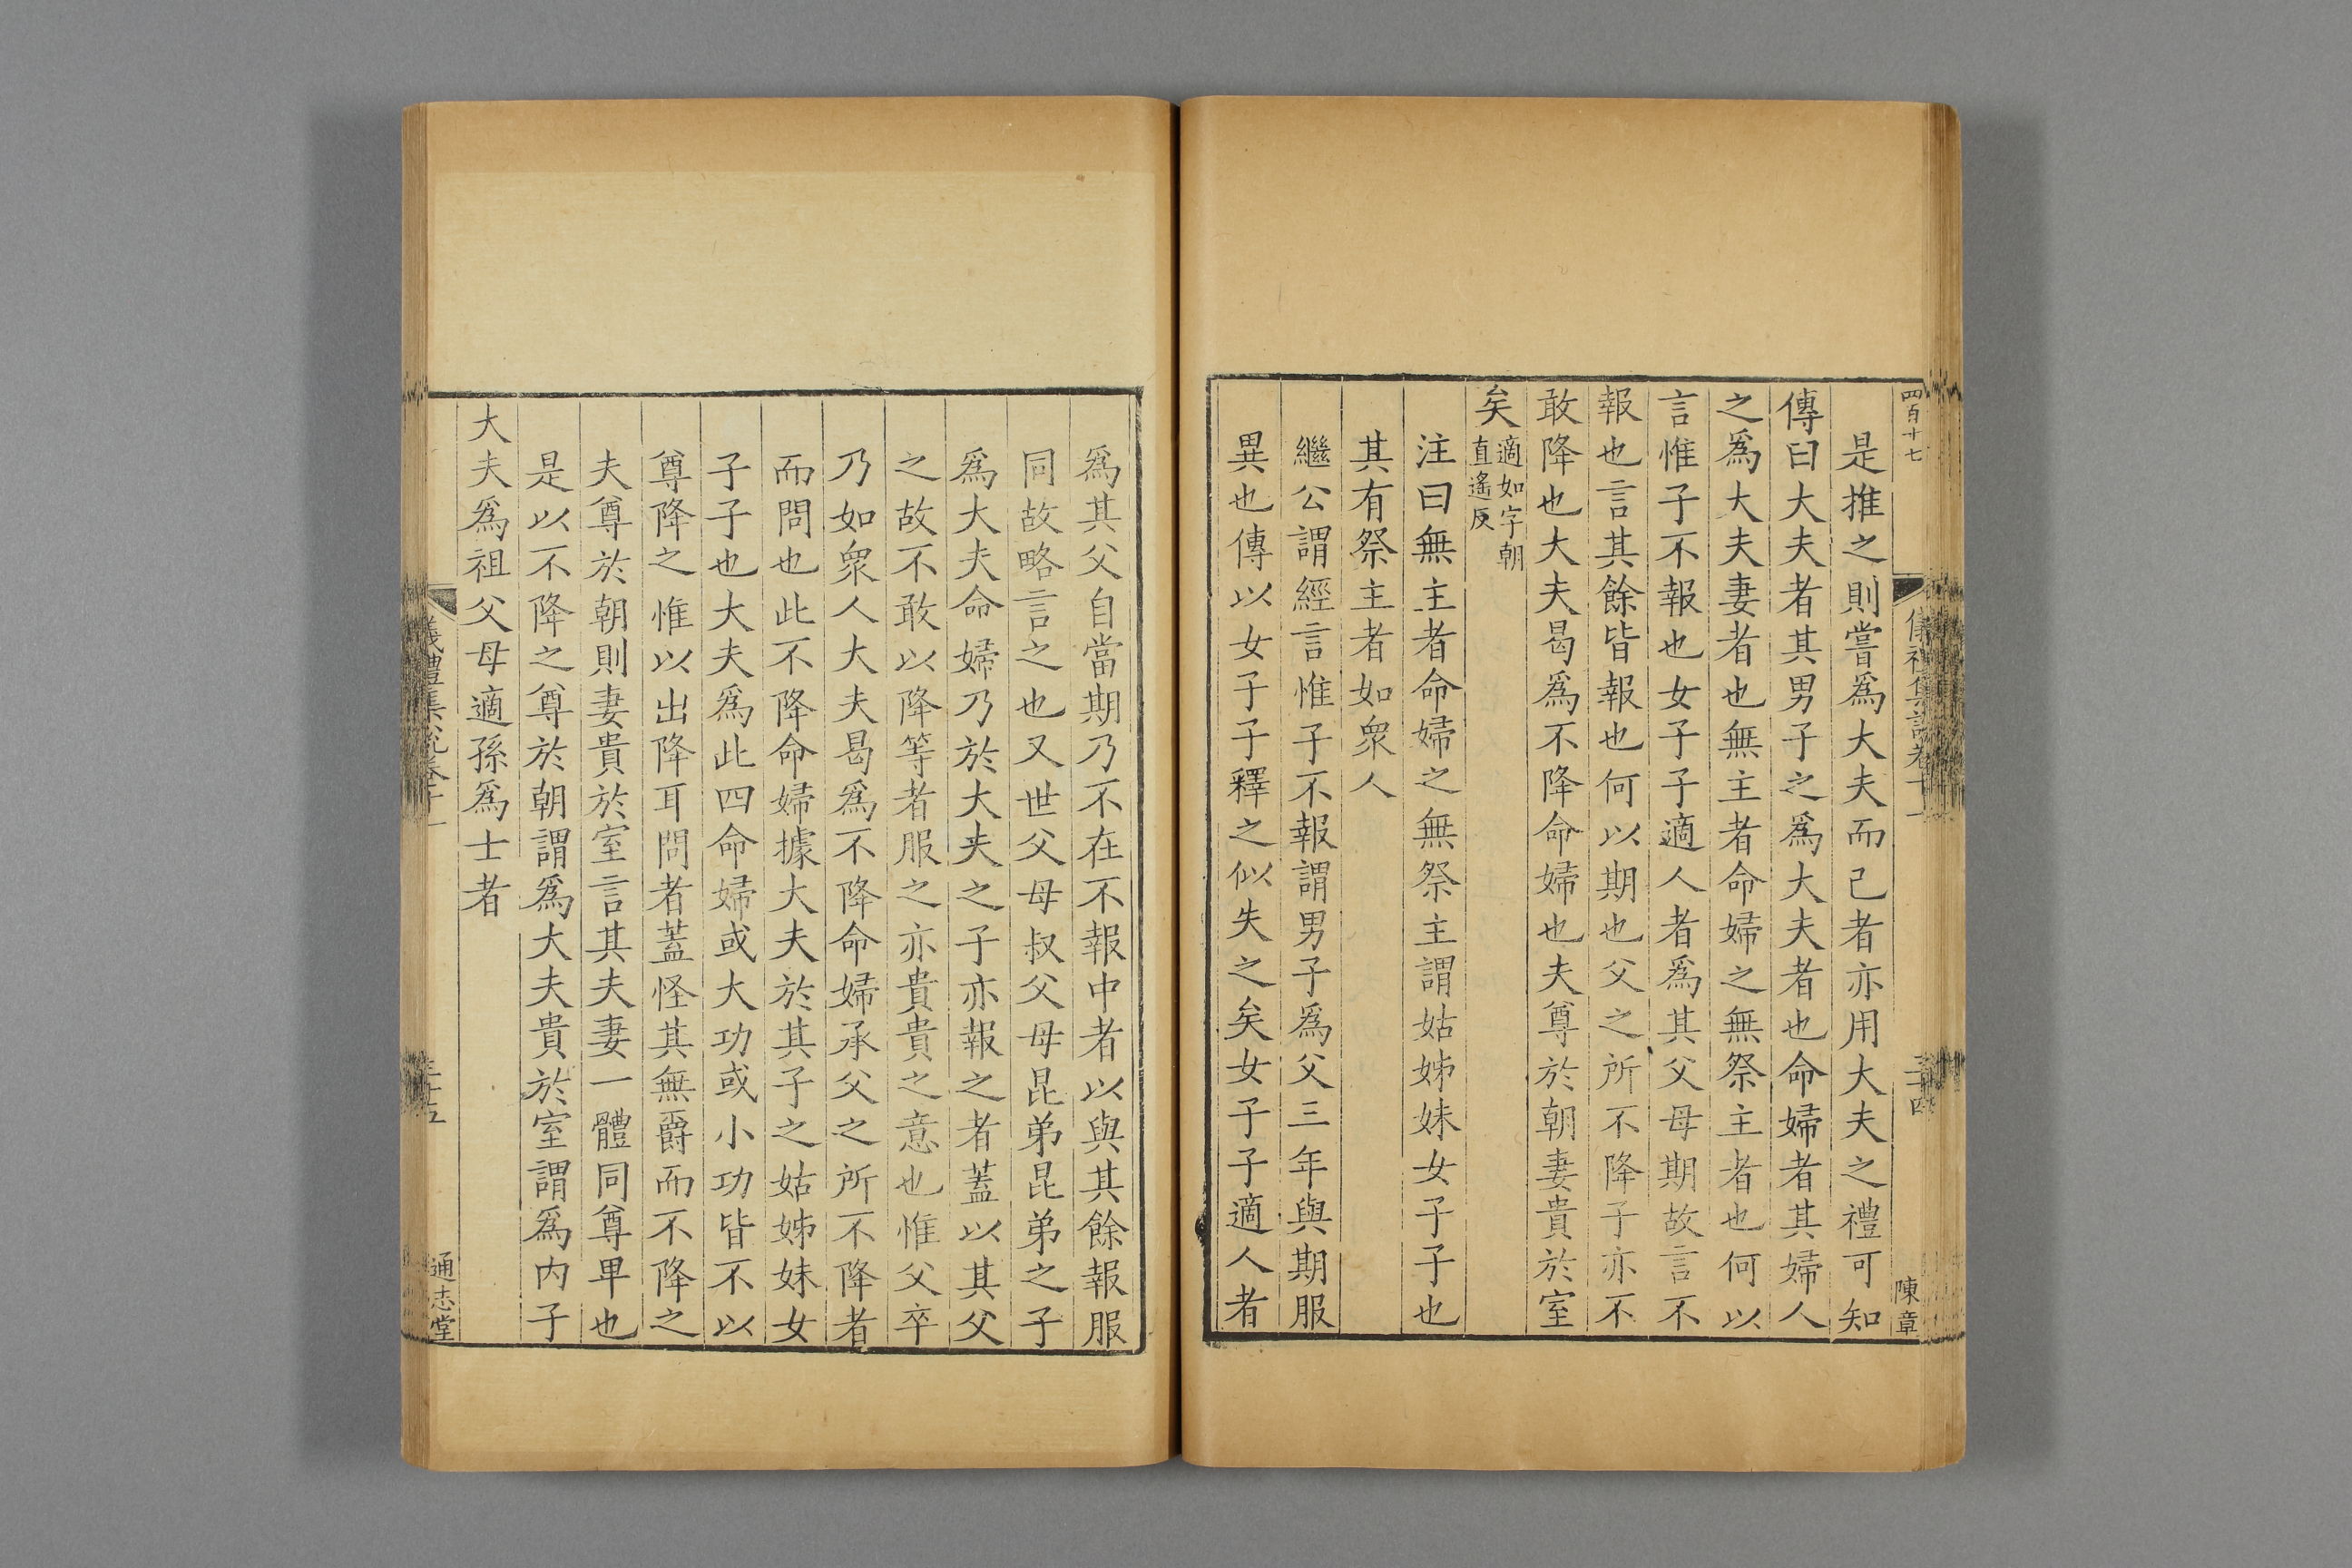 四百十七
陳章
是推之則嘗爲大夫而已者亦用大夫之禮可知
傳曰大夫者其男子之爲大夫者也命婦者其婦人
之爲大夫妻者也無主者命婦之無祭主者也何以
言惟子不報也女子子適人者爲其父母期故言不
報也言其餘皆報也何以期也父之所不降子亦不
敢降也大夫曷爲不降命婦也夫尊於朝妻貴於室
矣適如字朝
直遙反
注曰無主者命婦之無祭主謂姑姊妹女子子也
其有祭主者如衆人
繼公謂經言惟子不報謂男子爲父三年與期服
異也傳以女子子釋之似失之矣女子子適人者
爲其父自當期乃不在不報中者以與其餘報服
同故略言之也又世父母叔父母昆弟昆弟之子
爲大夫命婦乃於大夫之子亦報之者蓋以其父
之故不敢以降等者服之亦貴貴之意也惟父卒
乃如衆人大夫曷爲不降命婦承父之所不降者
而問也此不降命婦據大夫於其子之姑姊妹女
子子也大夫爲此四命婦或大功或小功皆不以
尊降之惟以出降耳問者蓋怪其無爵而不降之
夫尊於朝則妻貴於室言其夫妻一體同尊卑也
是以不降之尊於朝謂爲大夫貴於室謂爲内子
大夫爲祖父母適孫爲士者
通志堂